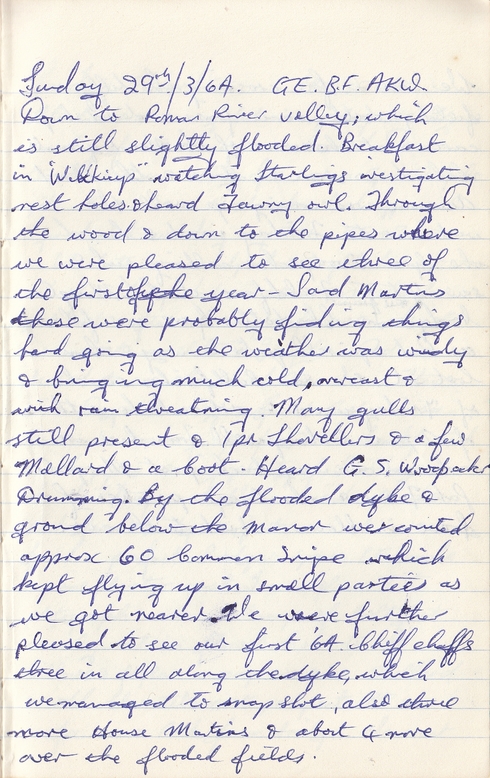 Sunday 29th/3/64. G.E. B.F. AKW.
Down to Roman River valley, which
is still slightly flooded. Breakfast
in "Wikkiup" watching Starlings investigating
nest holes. & heard Tawny owl. Through
the wood & down to the pipes where
we were pleased to see three of
the first of the year - Sand Martins
these were probably finding things
hard going as the weather was windy
& bringing much cold, overcast &
with rain threatning. Many gulls
still present & 1pr Shovellers & a few
Mallard & a coot. Heard G.S. Woodpecker
Drumming. By the flooded dyke &
ground below the Manor we counted
approx 60 Common Snipe which
kept flying up in small parties as
we got nearer. We were further
pleased to see our first '64 Chiffchaffs
three in all along the dyke, which
we managed to snapshot, also three
more House Martins & about 4 more
over the flooded fields.